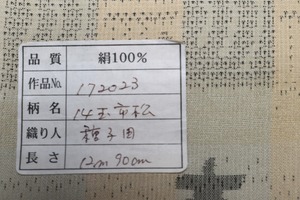 品質 絹100%
作品No. 172023
柄名 14玉市松
織り人
長さ 12m90cm